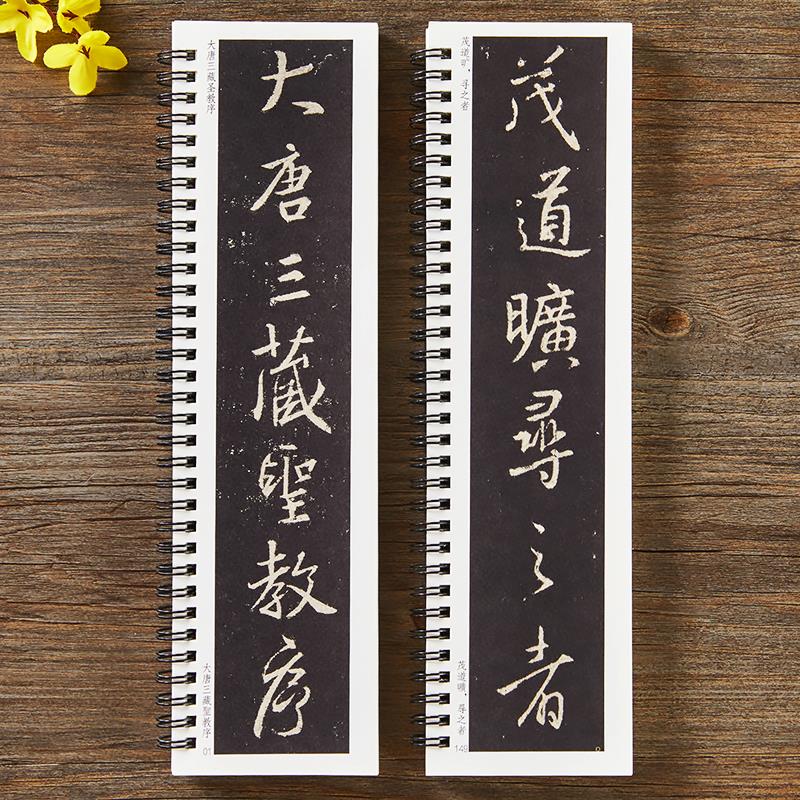 大唐三藏圣教序
大唐三藏聖教序
大唐三藏聖教序
01
茂道旷，寻之者
茂道曠尋之者
茂道曠，尋之者
149